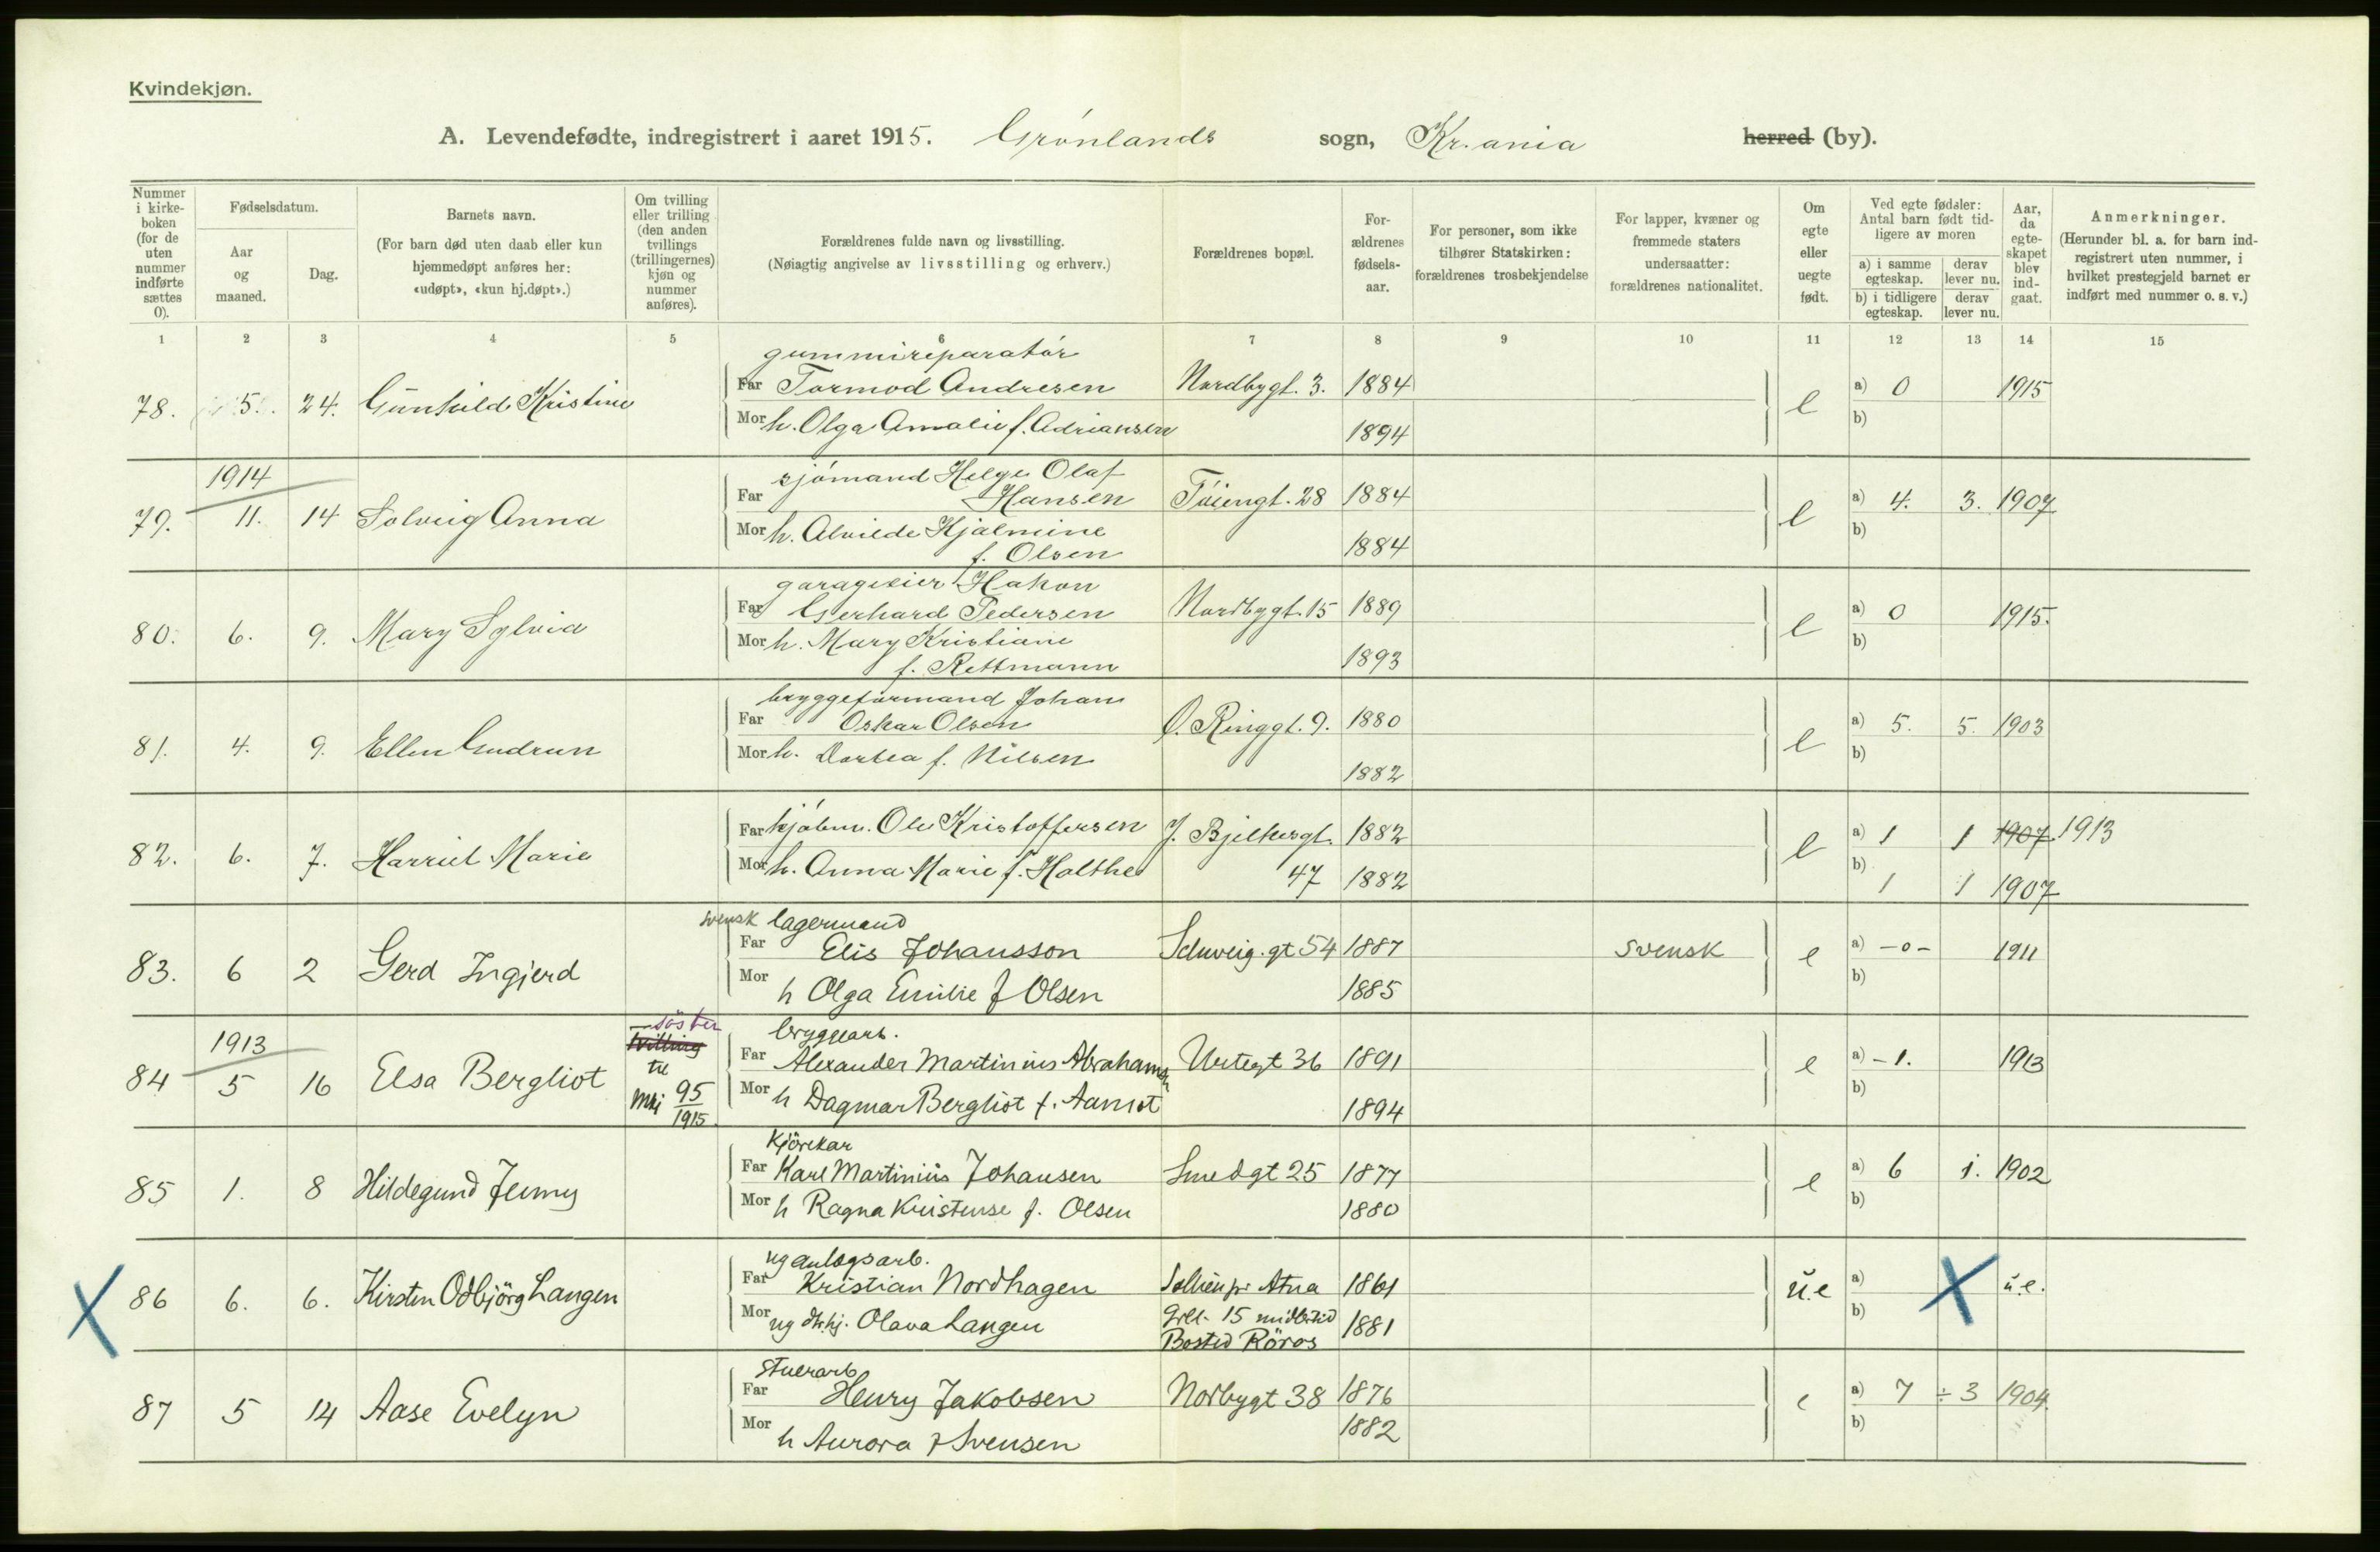 Kvindekjøn.
A. Levendefødte, indregistrert i aaret 1915. Grønlands sogn, Kr.ania herred (by).
Nummer i kirke-boken (for de uten nummer indførte sættes 0).
Fødselsdatum.
Aar og maaned.
Dag.
Barnets navn.
(For barn død uten daab eller kun hjemmedøpt anføres her: «udøpt», «kun hj.døpt».)
Om tvilling eller trilling (den anden tvillings (trillingernes) kjøn og nummer anføres).
Forældrenes fulde navn og livsstilling.
(Nøiagtig angivelse av livsstilling og erhverv.)
Forældrenes bopæl.
For-ældrenes fødsels-aar.
For personer, som ikke tilhører Statskirken: forældrenes trosbekjendelse
For lapper, kvæner og fremmede staters undersaatter: forældrenes nationalitet.
Om egte eller uegte født.
Ved egte fødsler: Antal barn født tid-ligere av moren
a) i samme egteskap. derav lever nu.
b) i tidligere egteskap. derav lever nu.
Aar, da egte-skapet blev ind-gaat.
Anmerkninger.
(Herunder bl. a. for barn ind-registrert uten nummer, i hvilket prestegjeld barnet er indført med nummer o. s. v.)
1 2 3 4 5 6 7 8 9 10 11 12 13 14 15
gummireparatör
78. 5. 24. Gunhild Kristine Far Tormod Andresen Nordbygt. 3. 1884 e a) 0 1915
Mor h. Olga Amalie f. Adriansen 1894 b)
1914 sjómand Helge Olaf
79. 11. 14 Solveig Anna Far Hansen Tóiengt. 28 1884 e a) 4. 3. 1907
Mor h. Alvilde Hjalmine 1884 b)
f. Olsen
garageeier Hakon
80. 6. 9. Mary Sylvia Far Gerhard Pedersen Nordbygt. 15 1889 e a) 0 1915.
Mor h. Mary Kristiane 1893 b)
f. Rettmann
bryggeformand Johan
81. 4. 9. Ellen Gudrun Far Oskar Olsen Ø. Ringgt. 9. 1880 e a) 5. 5. 1903
Mor h. Dortea f. Nilsen 1882 b)
82. 6. 7. Harriet Marie Far kjóbm. Ole Kristoffersen J. Bjelkesgt. 1882 e a) 1 1 1907 1913
Mor h. Anna Marie f. Holthe 47 1882 b) 1 1 1907
svensk lagermand
83. 6 2 Gerd Ingjerd Far Elis Johansson Schweig.gt 54 1887 svensk e a) -0- 1911
Mor h Olga Emilie f Olsen 1885 b)
1913 söster bryggearb.
84 5 16 Elsa Bergliot tvilling til Far Alexander Martinius Abrahamsen Urtegt 36 1891 e a) -1. 1913
Mkj 95/1915. Mor h Dagmar Bergliot f. Aamot 1894 b)
Kjörekar
85 1. 8 Hildegund Jenny Far Karl Martinius Johansen Smedgt 25 1877 e a) 6 1. 1902
Mor h Ragna Kristense f. Olsen 1880 b)
ug anlegsarb.
X 86 6. 6. Kirsten Odbjörg Langen Far Kristian Nordhagen Sollien pr Atna 1861 u.e a) X u.e.
Mor ug Olava Langen Grl. 15 midltid 1881 b)
Bosted Röros
Stuerarb
87 5 14 Aase Evelyn Far Henry Jakobsen Norbygt 38 1876 e a) 7 ÷ 3 1904.
Mor h Aurora f Svensen 1882 b)